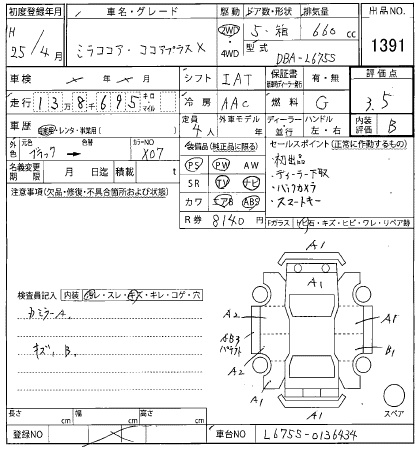 初度登録年月 車名・グレード 駆動 ドア数・形状 排気量 出品NO.
H 25/4月 ミラココア・ココアプラスX 2WD・4WD 5・箱 660 cc 1391
型式 DBA-L675S
車検 年 月 シフト IAT 保証書 有・無 評価点
走行 13万8千695 キロ・マイル 冷房 AAC 燃料 G 3.5
車歴 自家用・レンタ・事業用( ) 定員 4人 外車モデル 年 ディーラー・並行 ハンドル 左・右 内装評価 B
外色 元色 ブラック → 色替 カラーNO X07 装備品(純正品に限る) セールスポイント(正常に作動するもの)
PS PW AW ・初出品
名義変更期限 月 日迄 積載 t SR TV ナビ ・ディーラー下取
注意事項(欠品・修復・不具合箇所および状態) カワ エアB ABS ・バックカメラ
・スマートキー
R券 8140 円 Fガラス 飛石・キズ・ヒビ・ワレ・リペア跡
A1
A1
検査員記入 内装 ヨゴレ・スレ・キズ・キレ・コゲ・穴
A2 A1
AB3
B1
A2
キズ、B.
A1 A1
A1
スペア
長さ cm 幅 cm 高さ cm
登録NO 車台NO L675S-0136434